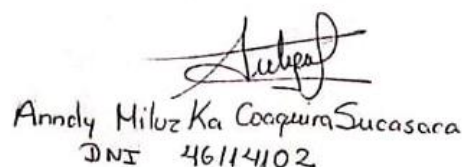 Anndy Miluz Ka Coaquira Sucasaca
DNI 46114102